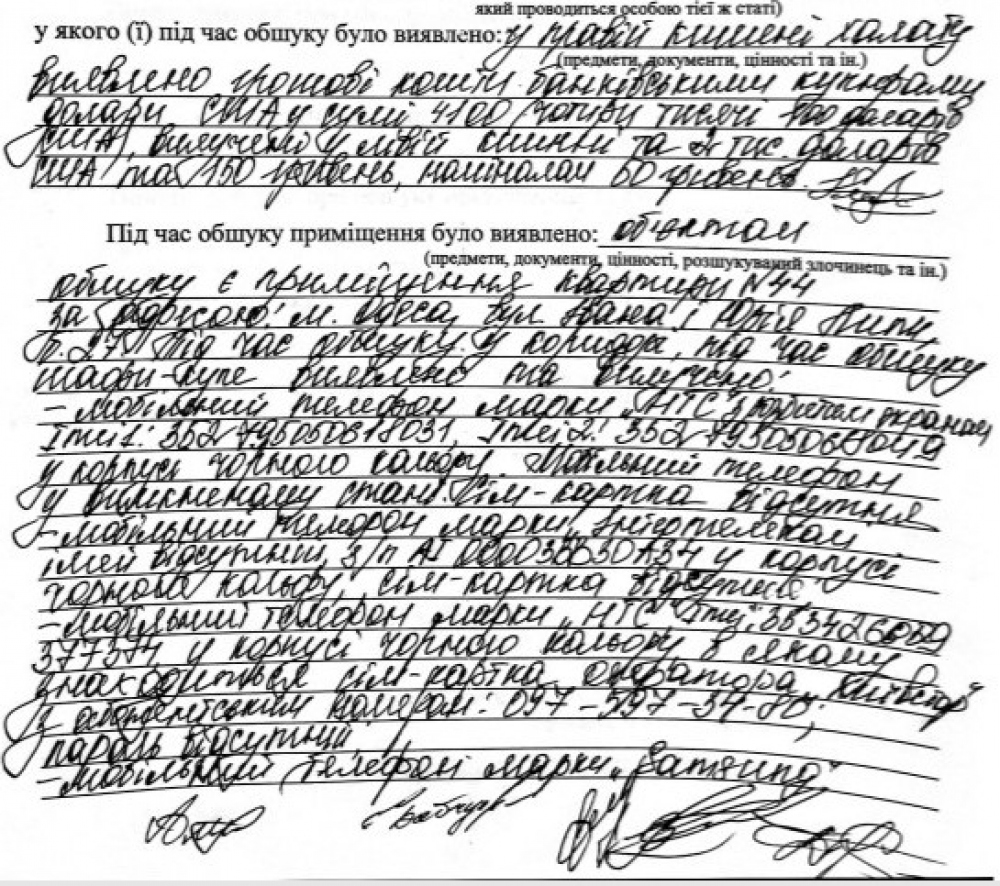 який проводиться особою тієї ж статі)
у якого (ї) під час обшуку було виявлено: у правій кишені халату
(предмети, документи, цінності та ін.)
виявлено грошові кошти банківськими купюрами
долари США у сумі 4100 /чотири тисячі 100 доларів
США/, вилучені у лівій кишені та 2 тис. доларів
США та 150 гривень, номіналом 50 гривень.
Під час обшуку приміщення було виявлено: об'єктом
(предмети, документи, цінності, розшукуваний злочинець та ін.)
обшуку є приміщення квартири №44
за адресою: м. Одеса, вул. Івана і Юрія Липи,
б. 27. Під час обшуку у коридорі, під час обшуку
шафи-купе виявлено та вилучено:
- мобільний телефон марки „HTC" з розбитим екраном,
Imei 1: 352795050618031, Imei 2: 352795050618049
у корпусі чорного кольору. Мобільний телефон
у вимкненому стані. Сім-картка відсутня
- мобільний телефон марки „Інтертелеком
імей відсутній, з/п А1 у корпусі
чорного кольору, сім-картка відсутня
- мобільний телефон марки „HTC" Imei: 353426050
377374 у корпусі чорного кольору в якому
знаходиться сім-картка оператора „Київстар"
з абонентським номером: 097-597-34-80,
пароль відсутній
- мобільний телефон марки „Samsung"